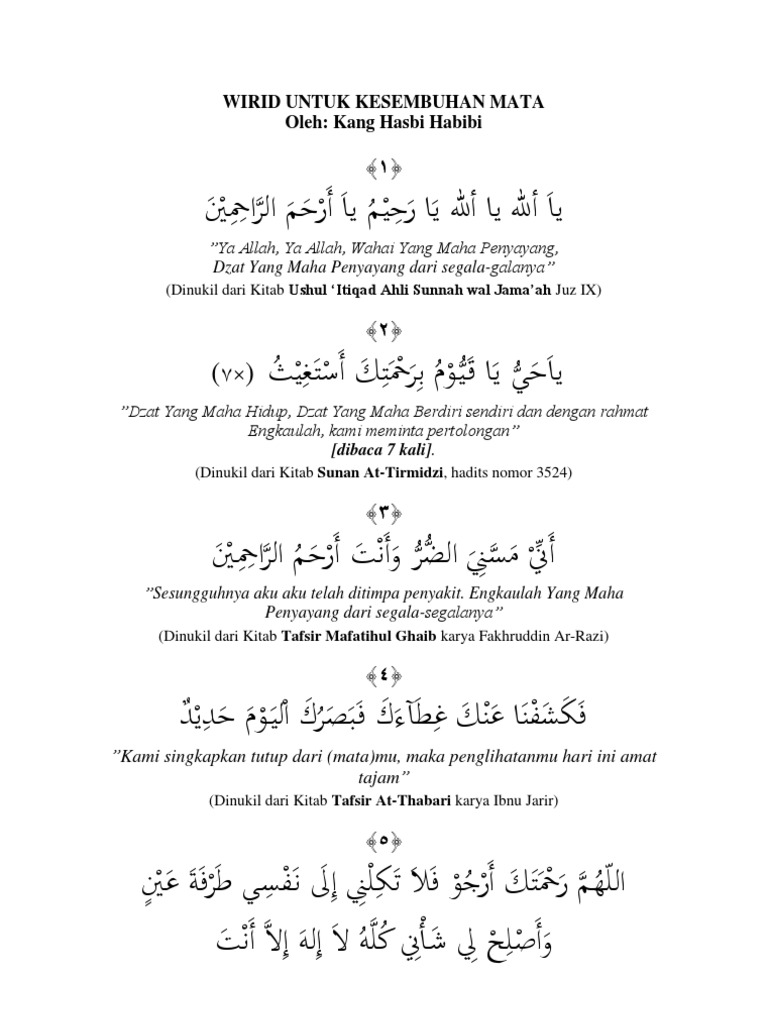 WIRID UNTUK KESEMBUHAN MATA
Oleh: Kang Hasbi Habibi
﴿١﴾
ياَ أَلله يا أَلله يَا رَحِيْمُ ياَ أَرْحَمَ الرَّاحِمِيْنَ
”Ya Allah, Ya Allah, Wahai Yang Maha Penyayang,
Dzat Yang Maha Penyayang dari segala-galanya”
(Dinukil dari Kitab Ushul ‘Itiqad Ahli Sunnah wal Jama’ah Juz IX)
﴿٢﴾
ياَحَيُّ يَا قَيُّوْمُ بِرَحْمَتِكَ أَسْتَغِيْثُ (×٧)
”Dzat Yang Maha Hidup, Dzat Yang Maha Berdiri sendiri dan dengan rahmat
Engkaulah, kami meminta pertolongan”
[dibaca 7 kali].
(Dinukil dari Kitab Sunan At-Tirmidzi, hadits nomor 3524)
﴿٣﴾
أَنِّيْ مَسَّنِيَ الضُّرُّ وَأَنْتَ أَرْحَمُ الرَّاحِمِيْنَ
”Sesungguhnya aku aku telah ditimpa penyakit. Engkaulah Yang Maha
Penyayang dari segala-segalanya”
(Dinukil dari Kitab Tafsir Mafatihul Ghaib karya Fakhruddin Ar-Razi)
﴿٤﴾
فَكَشَفْنَا عَنْكَ غِطَآءَكَ فَبَصَرُكَ ٱلْيَوْمَ حَدِيْدٌ
”Kami singkapkan tutup dari (mata)mu, maka penglihatanmu hari ini amat
tajam”
(Dinukil dari Kitab Tafsir At-Thabari karya Ibnu Jarir)
﴿٥﴾
اللّهُمَّ رَحْمَتَكَ أَرْجُوْ فَلاَ تَكِلْنِي إِلَى نَفْسِي طَرْفَةَ عَيْنٍ
وَأَصْلِحْ لِي شَأْنِي كُلَّهُ لاَ إِلهَ إِلاَّ أَنْتَ